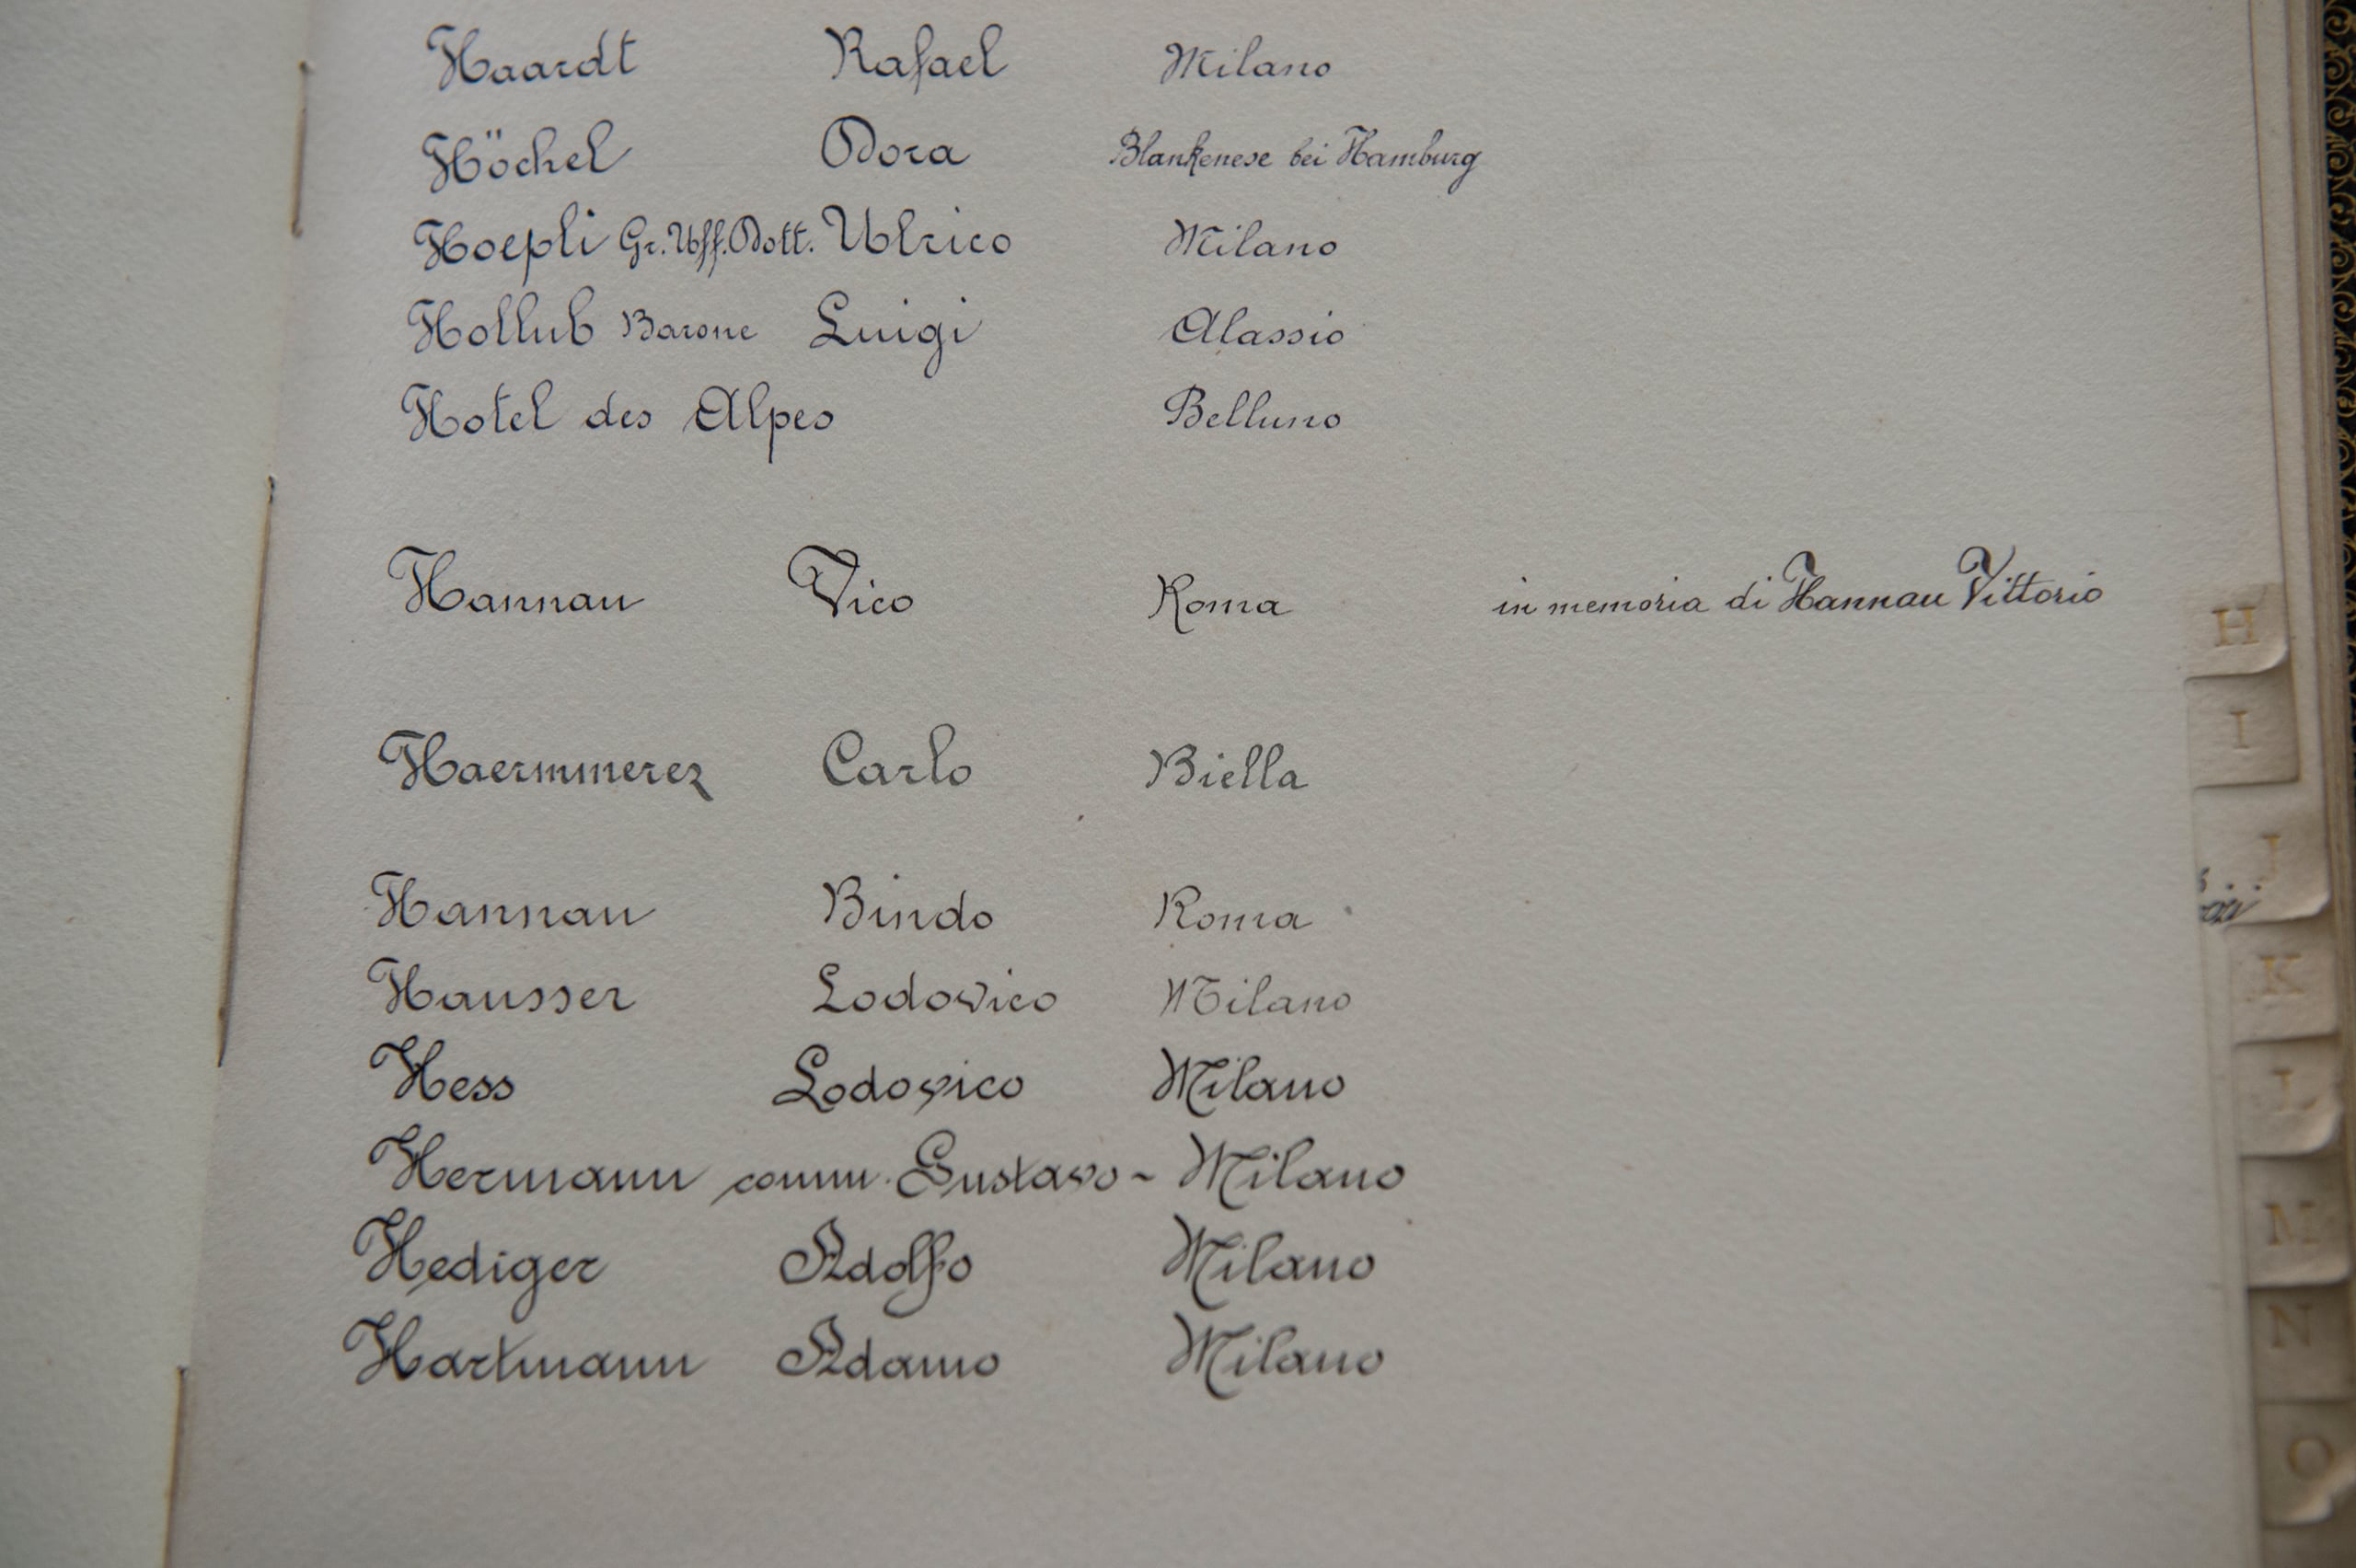 Haardt Rafael Milano
Höchel Dora Blankenese bei Hamburg
Hoepli Gr. Uff. Dott. Ulrico Milano
Hollub Barone Luigi Alassio
Hotel des Alpes Belluno
Hannau Vico Roma in memoria di Hannau Vittorio
Haermmerez Carlo Biella
Hannau Bindo Roma
Hausser Lodovico Milano
Hess Lodovico Milano
Hermann comm. Gustavo - Milano
Hediger Adolfo Milano
Hartmann Adamo Milano
H
I
J
K
L
M
N
O